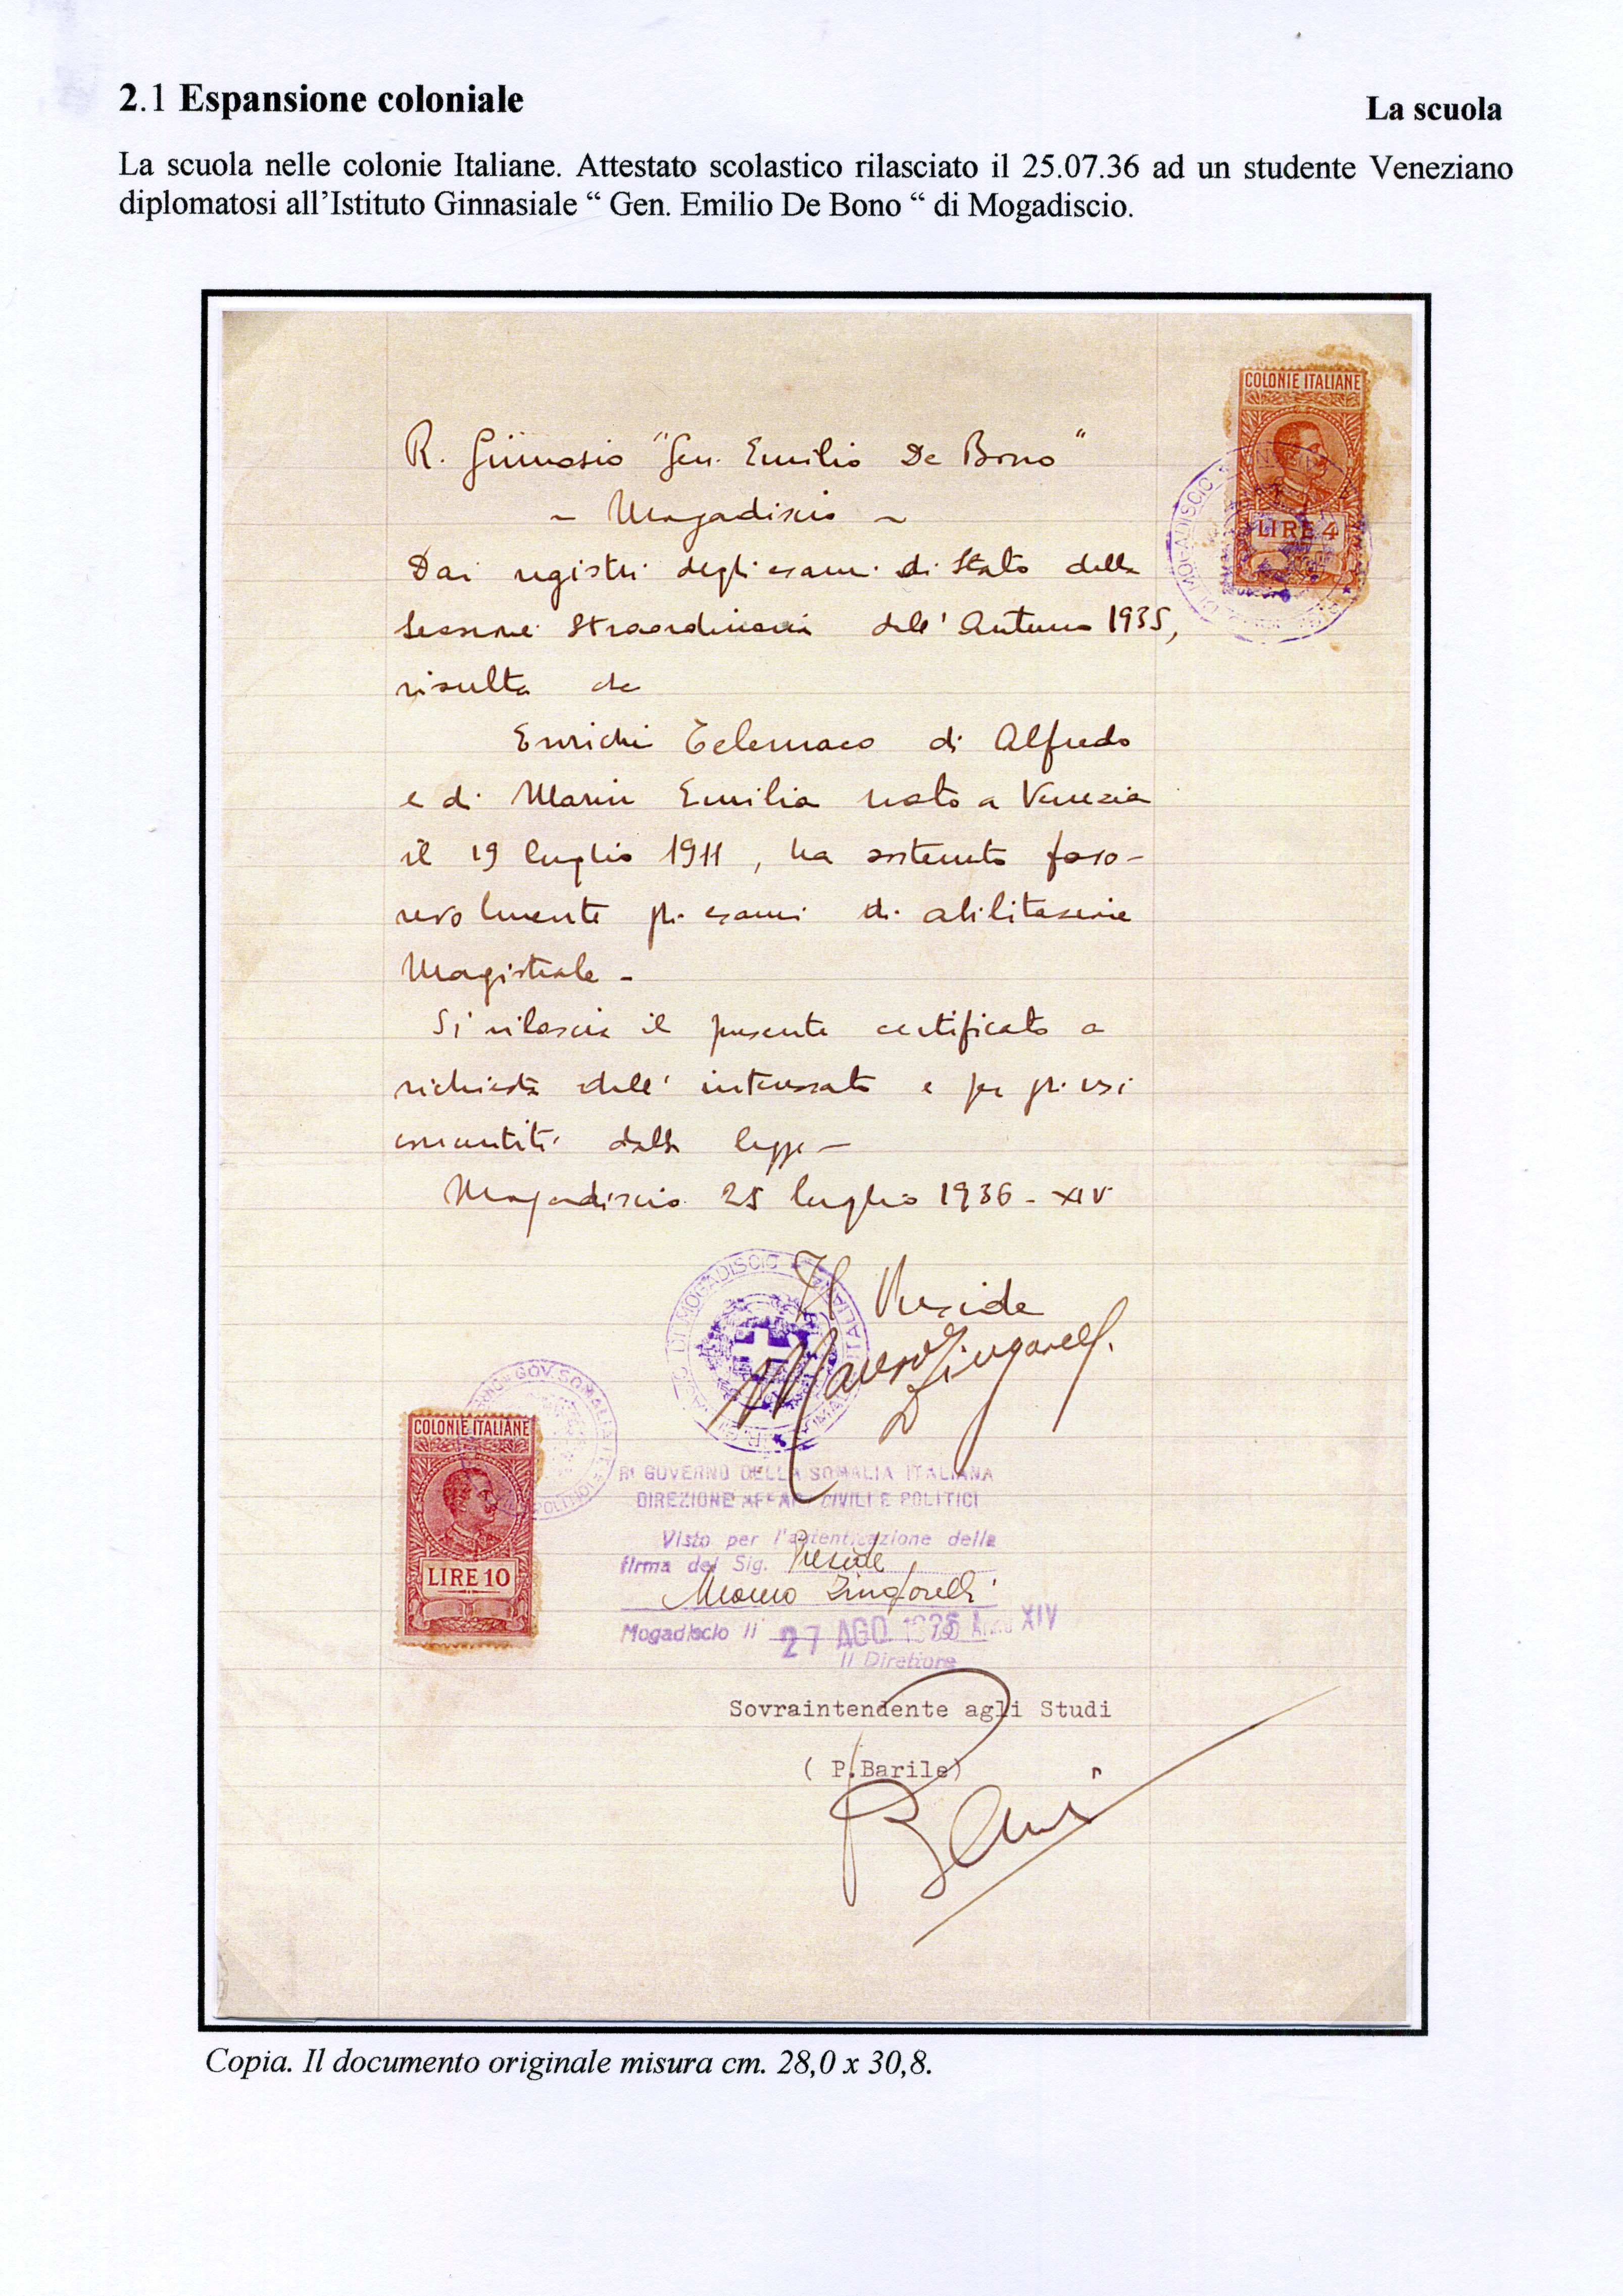 2.1 Espansione coloniale
La scuola
La scuola nelle colonie Italiane. Attestato scolastico rilasciato il 25.07.36 ad un studente Veneziano
diplomatosi all’Istituto Ginnasiale “ Gen. Emilio De Bono “ di Mogadiscio.
COLONIE ITALIANE
LIRE 4
DI MOGADISCIO
R. Ginnasio "Gen. Emilio De Bono"
~ Mogadiscio ~
Dai registri degli esami di Stato della
Sessione Straordinaria dell' Autunno 1935,
risulta che
Enrichi Telemaco di Alfredo
e di Marin Emilia nato a Venezia
il 19 luglio 1911, ha sostenuto favo-
revolmente gli esami di abilitazione
Magistrale -
Si rilascia il presente certificato a
richiesta dell' interessato e per gli usi
consentiti dalla legge -
Mogadiscio 25 luglio 1936 - XIV
Il Preside
Mauro Zingarelli
DI MOGADISCIO
GOV. SOMALIA
COLONIE ITALIANE
LIRE 10
R° GOVERNO DELLA SOMALIA ITALIANA
DIREZIONE AFFARI CIVILI E POLITICI
Visto per l'autenticazione della
firma del Sig. Preside
Mauro Zingarelli
Mogadiscio li 27 AGO 1936 Anno XIV
Il Direttore
Sovraintendente agli Studi
( P.Barile)
Copia. Il documento originale misura cm. 28,0 x 30,8.